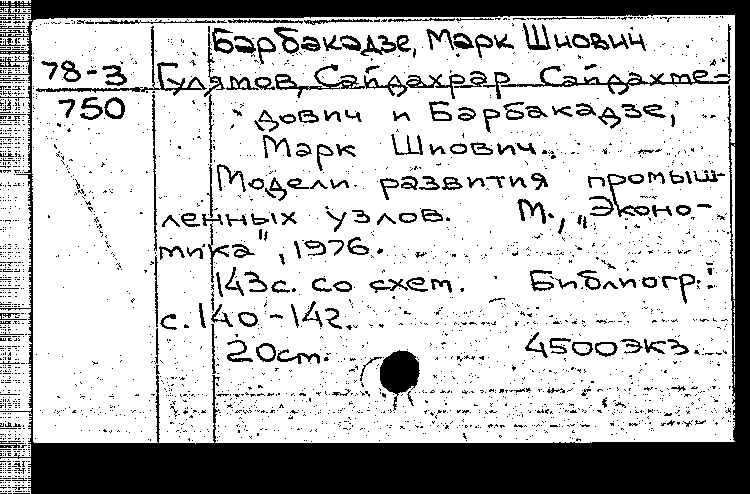 Барбакадзе, Марк Шиович
78-3
750
Гулямов, Сайдахрар Сайдахме-
дович и Барбакадзе,
Марк Шиович.
Модели развития промыш-
ленных узлов. М., „Эконо-
мика", 1976.
143с. со схем. Библиогр.:
с. 140-142.
20см. 4500экз.